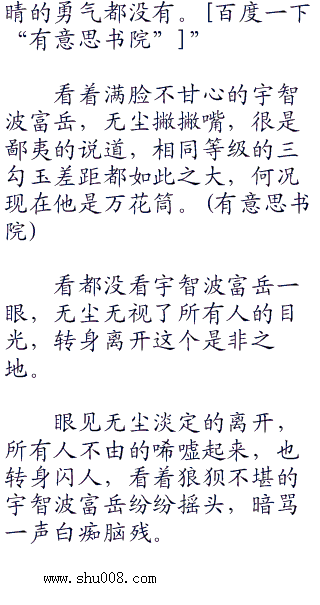 睛的勇气都没有。[百度一下
“有意思书院”]”
看着满脸不甘心的宇智
波富岳，无尘撇撇嘴，很是
鄙夷的说道，相同等级的三
勾玉差距都如此之大，何况
现在他是万花筒。(有意思书
院)
看都没看宇智波富岳一
眼，无尘无视了所有人的目
光，转身离开这个是非之
地。
眼见无尘淡定的离开，
所有人不由的唏嘘起来，也
转身闪人，看着狼狈不堪的
宇智波富岳纷纷摇头，暗骂
一声白痴脑残。
www.shu008.com